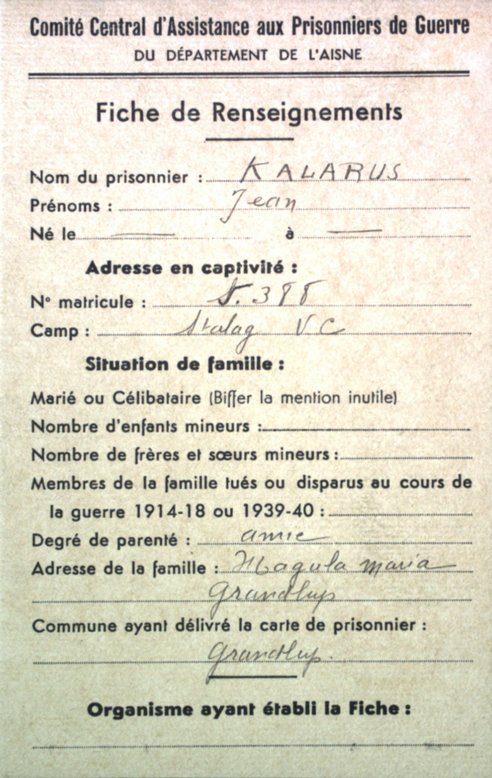 Comité Central d'Assistance aux Prisonniers de Guerre
DU DÉPARTEMENT DE L'AISNE
Fiche de Renseignements
Nom du prisonnier : KALARUS
Prénoms : Jean
Né le — à —
Adresse en captivité :
N° matricule :
Camp : Stalag V C
Situation de famille :
Marié ou Célibataire (Biffer la mention inutile)
Nombre d'enfants mineurs :
Nombre de frères et sœurs mineurs :
Membres de la famille tués ou disparus au cours de
la guerre 1914-18 ou 1939-40 :
Degré de parenté : amie
Adresse de la famille : Magula maria
Grandlup
Commune ayant délivré la carte de prisonnier :
Grandlup.
Organisme ayant établi la Fiche :